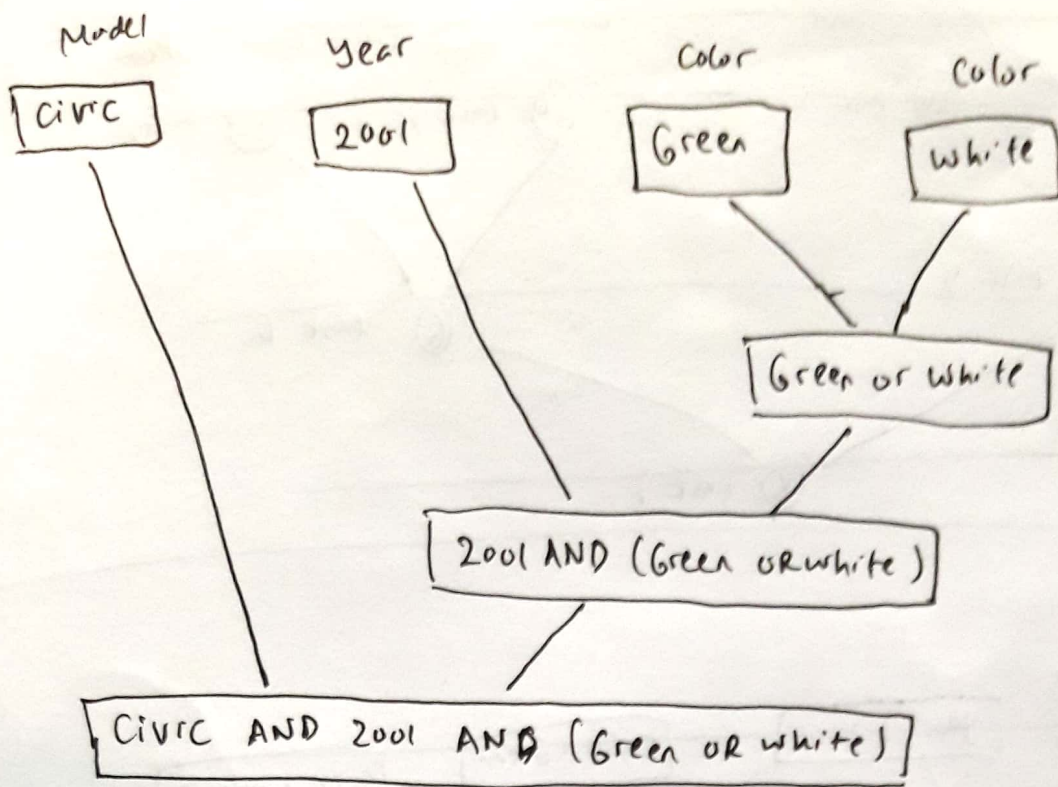 Model
Year
Color
Color
Civic
2001
Green
White
Green or White
2001 AND (Green OR White)
Civic AND 2001 AND (Green OR White)